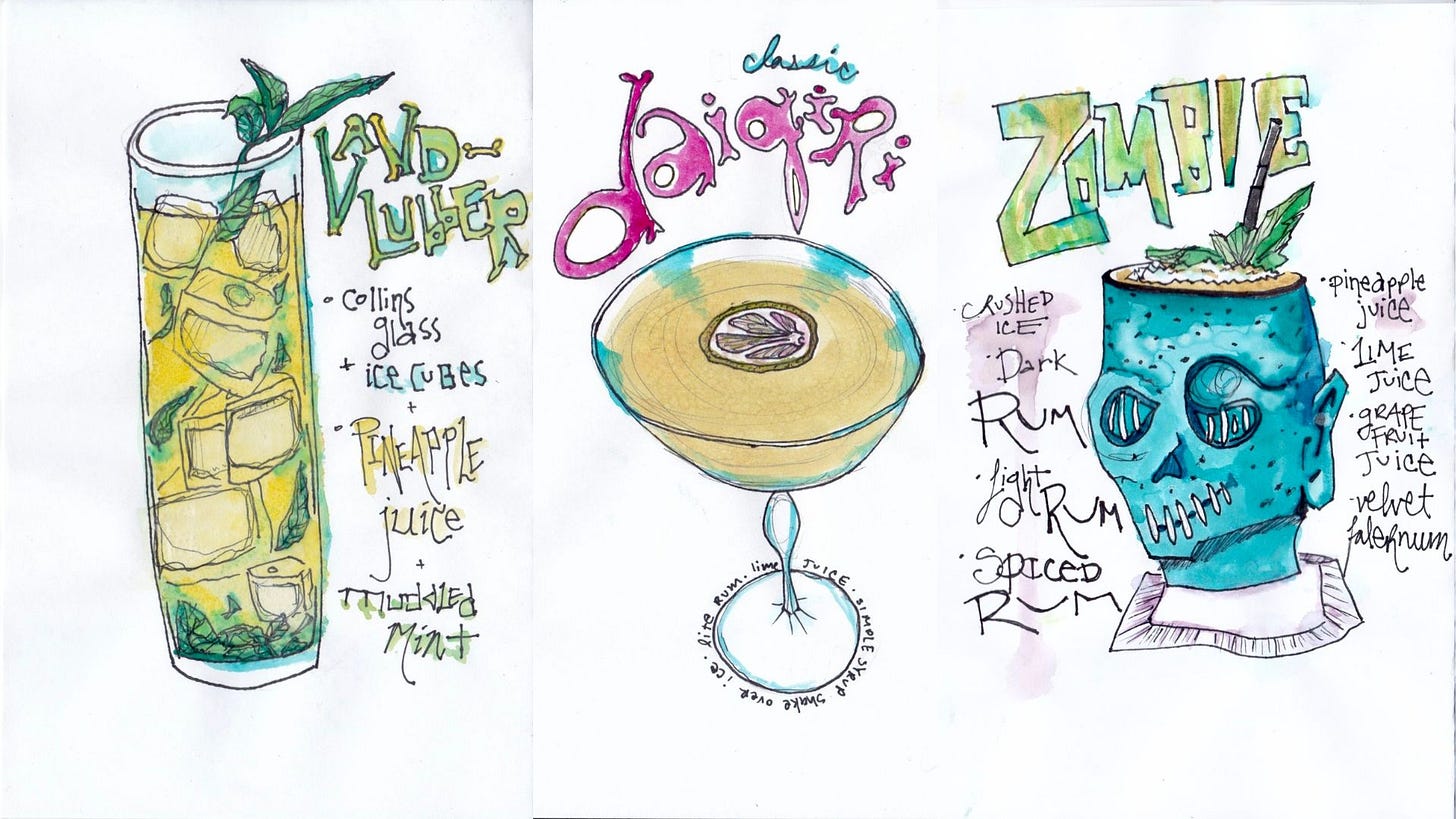 LAND-
LUBBER
• Collins
glass
+ ice cubes
+
• PINEAPPLE
juice
+
muddled
Mint
classic
daiqiri
lite rum. lime juice. simple syrup shake over ice.
ZOMBIE
• CRUSHED
ICE
• Dark
Rum
• light
Rum
• SPICED
Rum
• pineapple
juice
• LIME
Juice
• GRAPE
FRUIT
Juice
• velvet
falernum